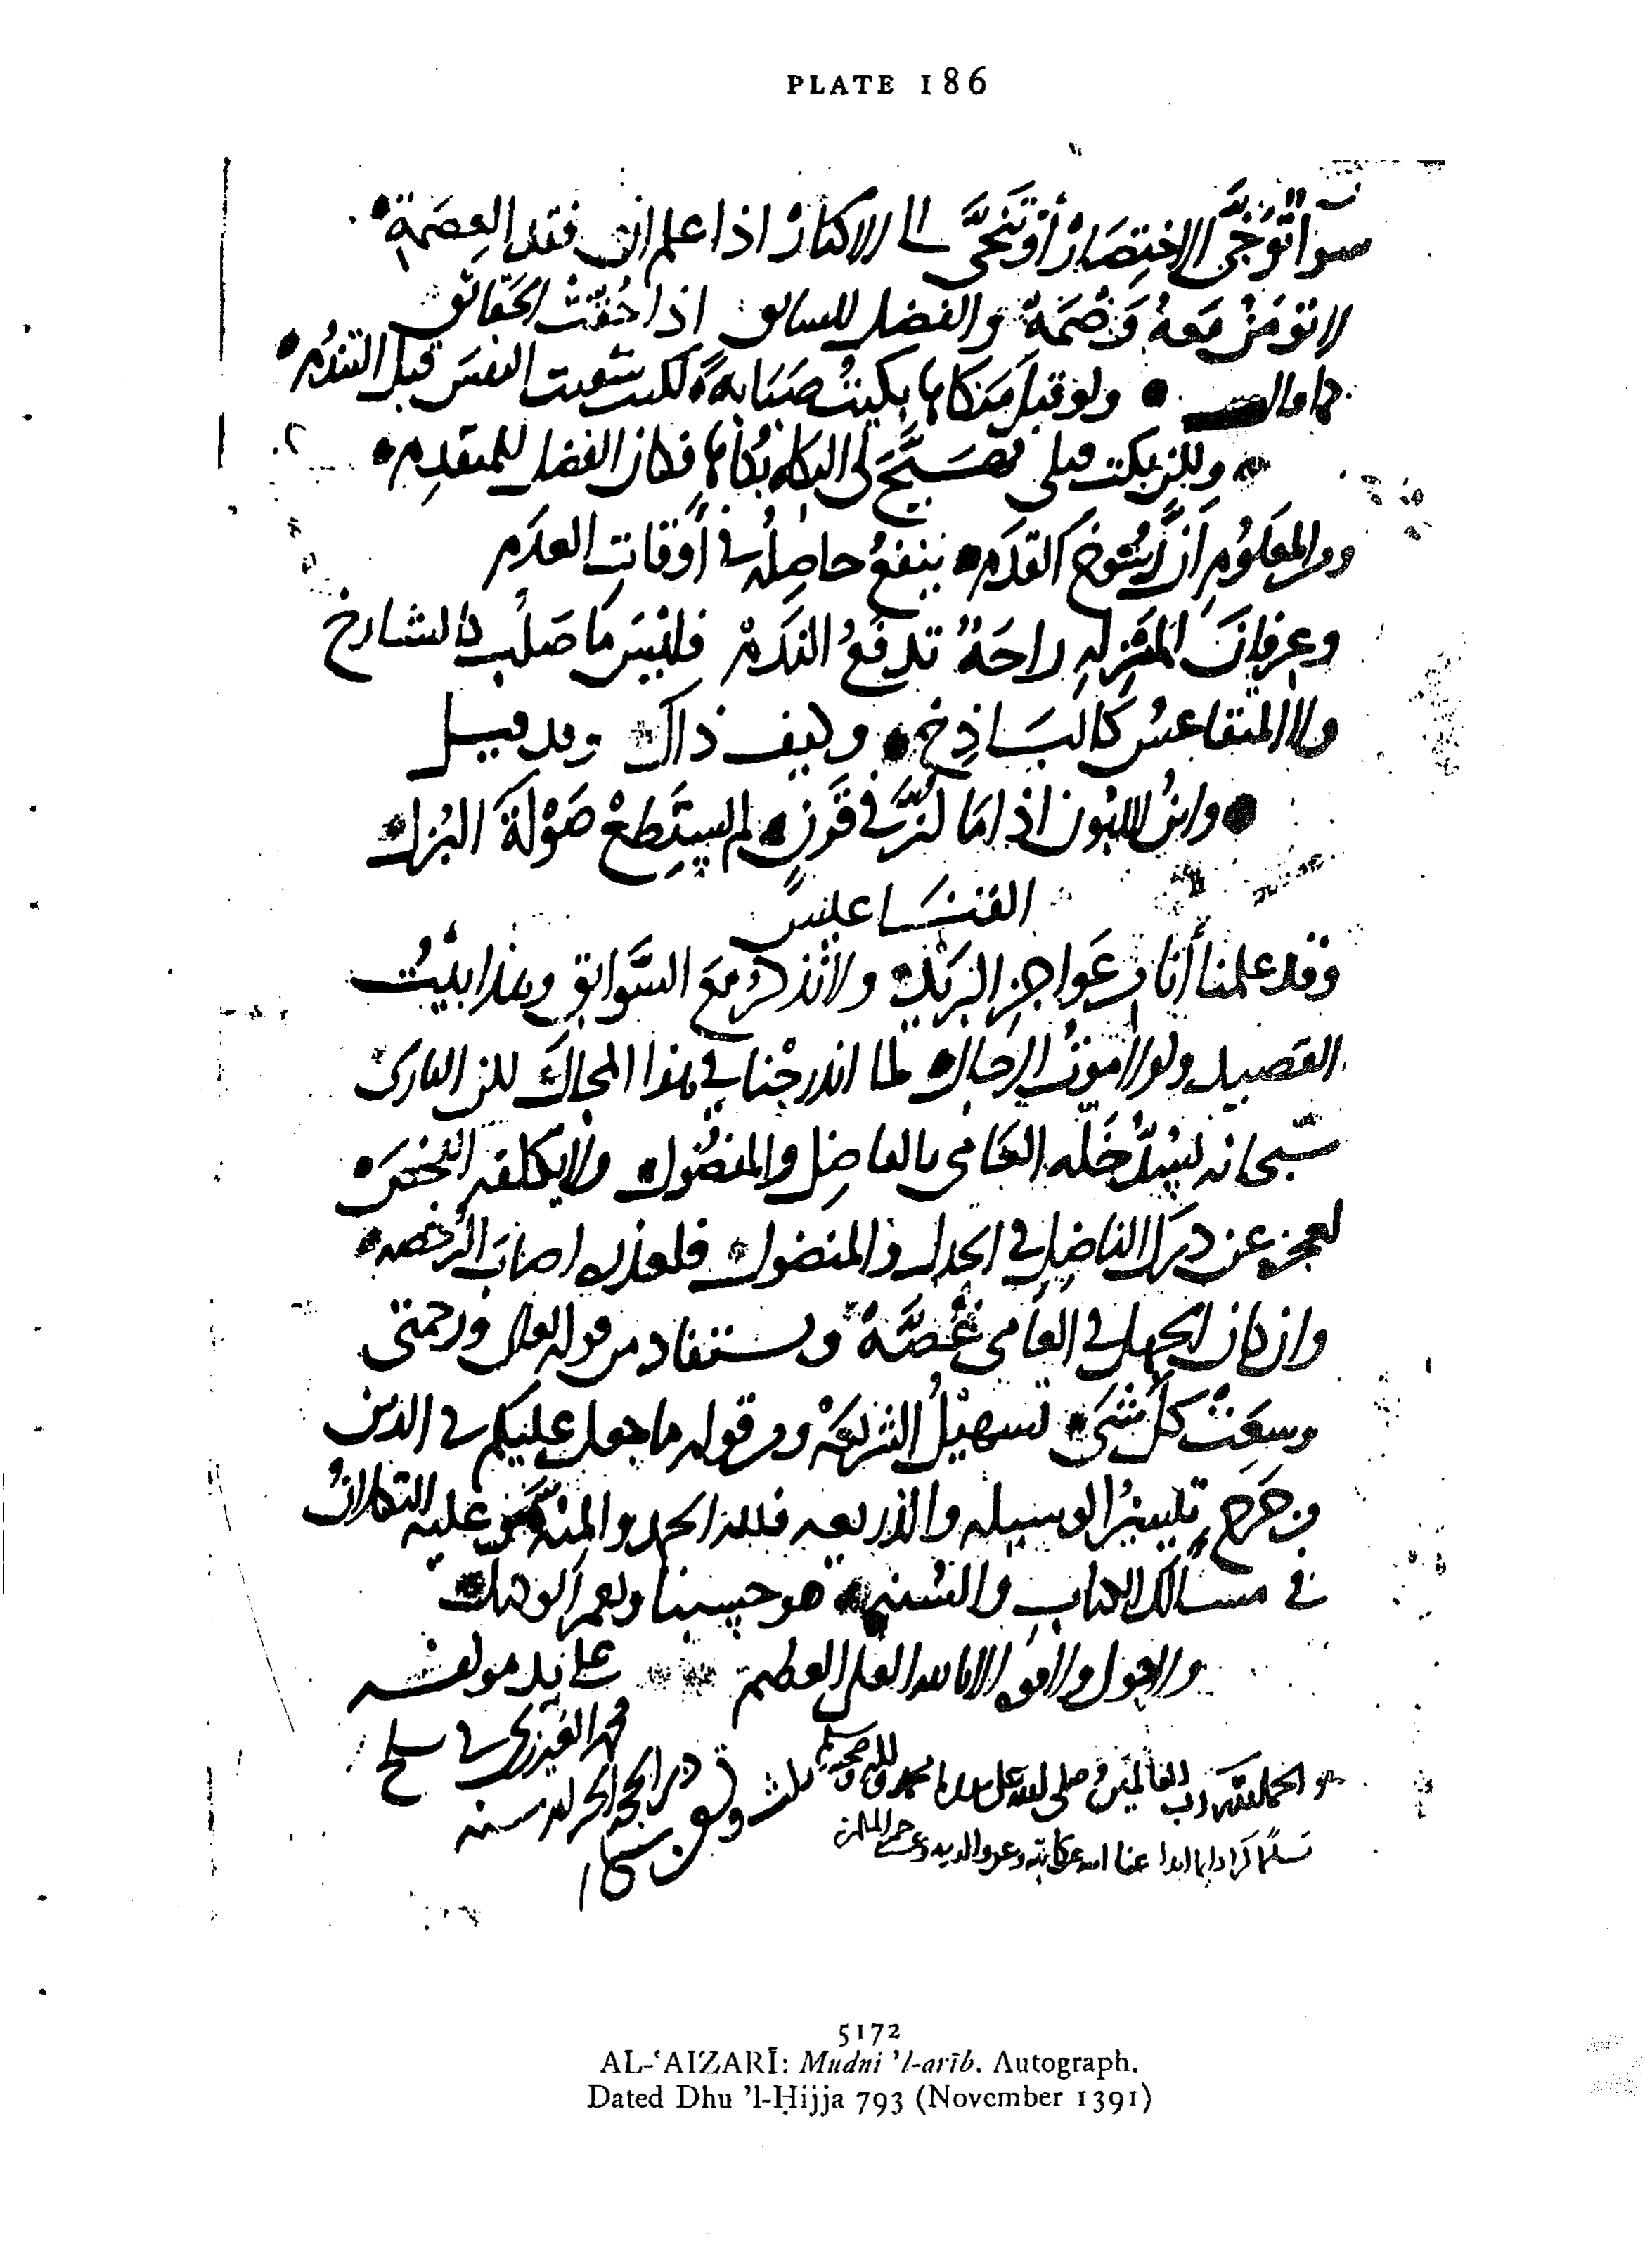 PLATE 186
سوا توخى الاختصار أو تنحى الى الاكثار اذا علم ان فقد العصمة
لا تؤمن معه وصمة والفضل للسابق اذا حققت الحقائق
كما قال ولو قبل مبكاها بكيت صبابة لكنت شفيت النفس قبل التندم
ولكن بكت قبلي فهيج لي البكاء بكاها فكان الفضل للمتقدم
ومن المعلوم أن رسوخ القدم ينفع حاصله في أوقات العدم
وعرفان المنزله راحة تدفع الندم فليس ما صلب كالشارخ
ولا المتقاعس كالباذخ وكيف ذاك وقد قيل
وابن اللبون اذا ما لز في قرن لم يستطع صولة البزل
القناعيس
وقد علمنا أنا من عواجز البزل ولا نذكر مع السوابق وهذا بيت
القصيد ولولا موت الرجال لما اندرجنا في هذا المجال لكن البارئ
سبحانه العامي بالفاضل والمفضول ولا يكلفه
لعجزه عن درك الفاضل في الجدل والمفضول فلعذره اصاب الرخصه
وان كان الجهل في العامي غصة ويستفاد من قوله تعالى ورحمتي
وسعت كل شيء تسهيل الشريعة ومن قوله ما جعل عليكم في الدين
من حرج تليين الوسيله والذريعه فلله الحمد والمنة وعليه التكلان
في مسالك الكتاب والسنه هو حسبنا ونعم الوكيل
ولا حول ولا قوة الا بالله العلي العظيم على يد مولفه
محمد العيزري في سلخ
ذي الحجه الحرام سنه
ثلث وتسعين وسبعمائة
والحمد لله رب العالمين وصلى الله على سيدنا محمد وآله وصحبه وسلم
تسليما كثيرا دائما ابدا عفا الله عن كاتبه وعن والديه وعن جميع المسلمين
5172
AL-ʿAIZARĪ: Mudni ’l-arīb. Autograph.
Dated Dhu ’l-Ḥijja 793 (November 1391)